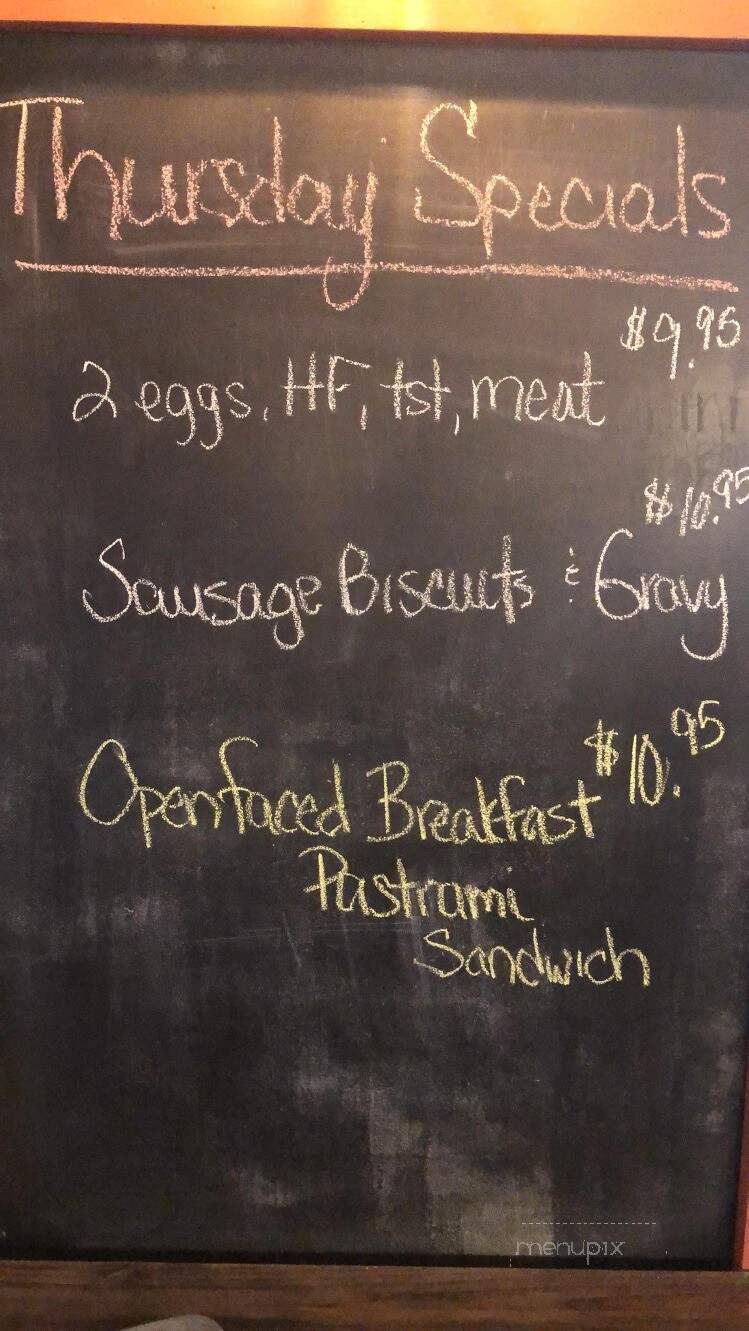 Thursday Specials
$9.95
2 eggs, HF, tst, meat
$10.95
Sausage Biscuits & Gravy
$10.95
Openfaced Breakfast
Pastrami
Sandwich
menupix